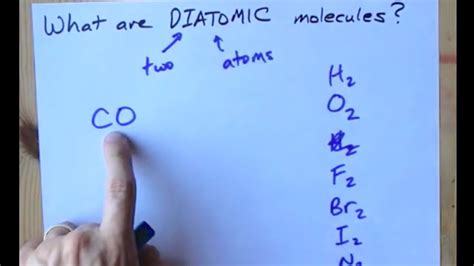 What are DIATOMIC molecules?
two atoms
CO
H₂
O₂
F₂
Br₂
I₂
N₂